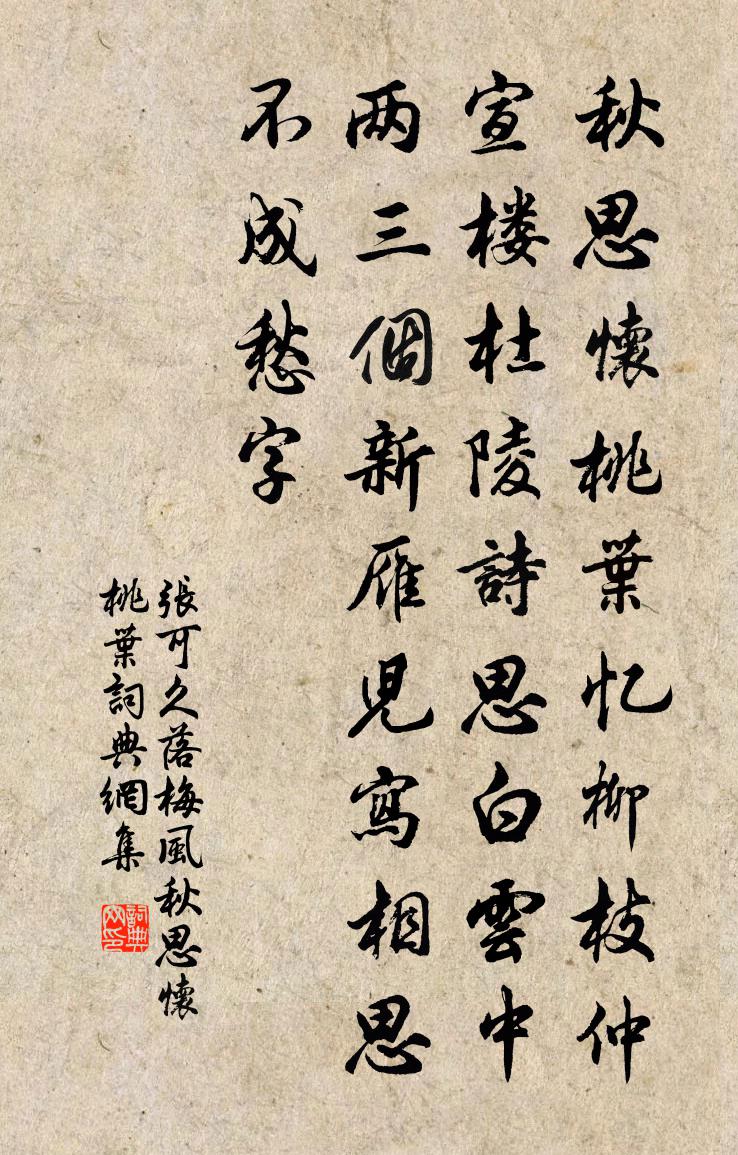 秋思懷桃葉忆柳枝仲
宣楼杜陵詩思白雲中
两三個新雁児寫相思
不成愁字
張可久落梅風秋思懷
桃葉詞典網集
詞典
网印